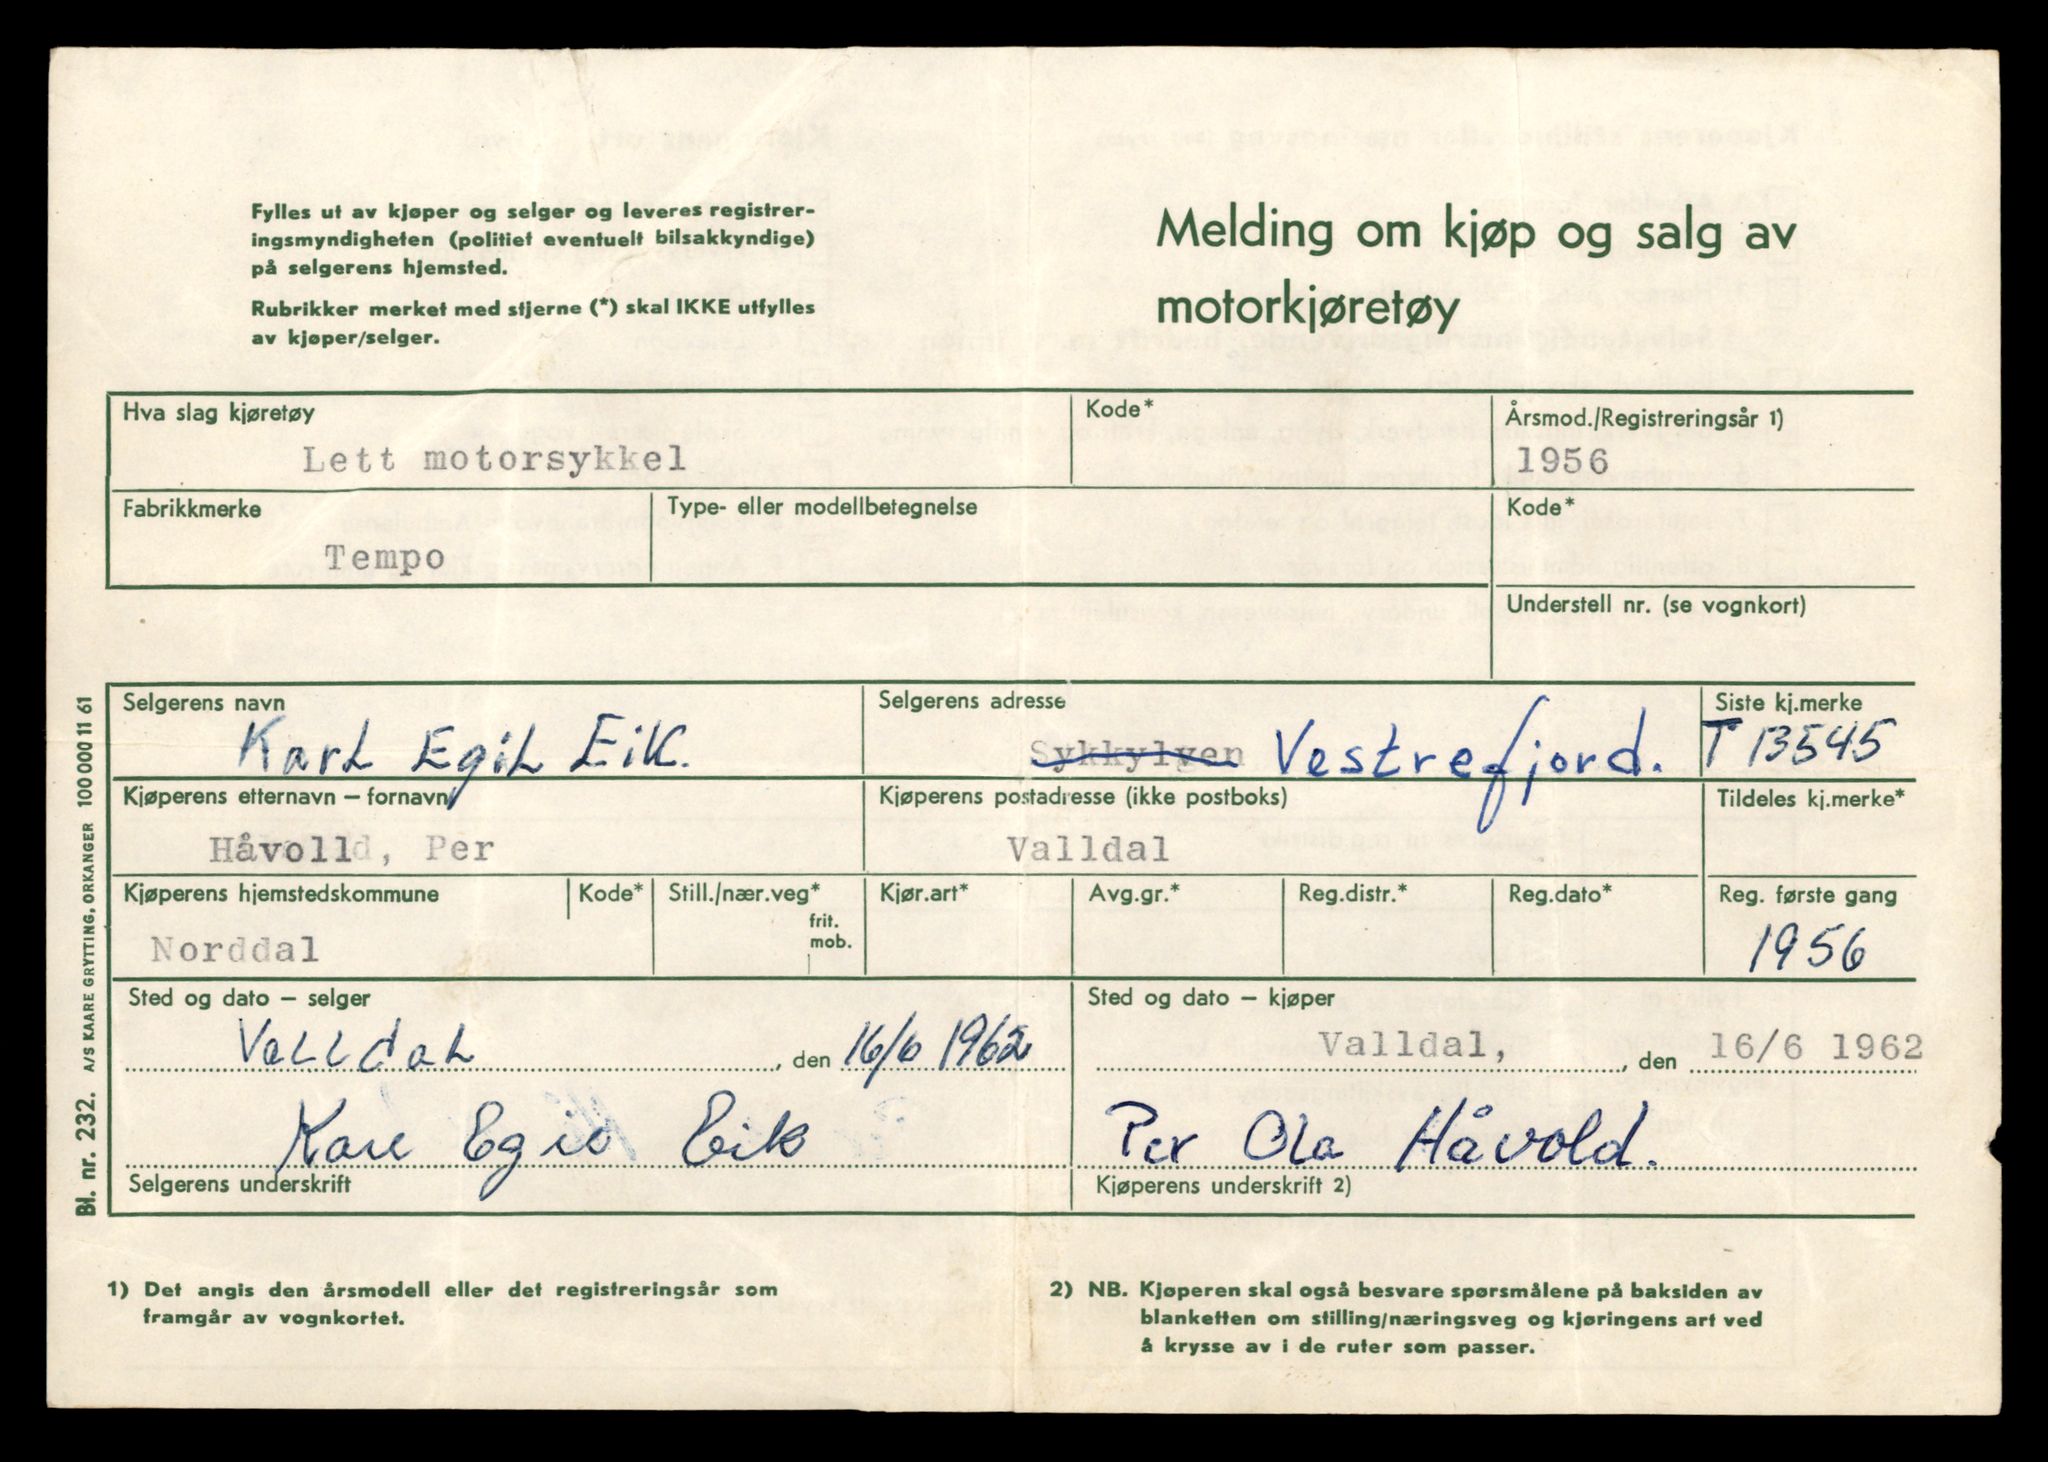 Fylles ut av kjøper og selger og leveres registrer-
ingsmyndigheten (politiet eventuelt bilsakkyndige)
på selgerens hjemsted.
Rubrikker merket med stjerne (*) skal IKKE utfylles
av kjøper/selger.
Melding om kjøp og salg av
motorkjøretøy
Hva slag kjøretøy
Kode*
Årsmod./Registreringsår 1)
Lett motorsykkel
1956
Fabrikkmerke
Type- eller modellbetegnelse
Kode*
Tempo
Understell nr. (se vognkort)
Selgerens navn
Selgerens adresse
Siste kj.merke
Karl Egil Eik.
Sykkylven Vestrefjord.
T 13545
Kjøperens etternavn – fornavn
Kjøperens postadresse (ikke postboks)
Tildeles kj.merke*
Håvolld, Per
Valldal
Kjøperens hjemstedskommune
Kode*
Still./nær.veg*
frit.
mob.
Kjør.art*
Avg.gr.*
Reg.distr.*
Reg.dato*
Reg. første gang
Norddal
1956
Sted og dato – selger
Sted og dato – kjøper
Valldal, den 16/6 1962
Valldal, , den 16/6 1962
Karl Egil Eik
Per Ola Håvold.
Selgerens underskrift
Kjøperens underskrift 2)
Bl. nr. 232. A/S KAARE GRYTTING, ORKANGER 100 000 11 61
1) Det angis den årsmodell eller det registreringsår som
framgår av vognkortet.
2) NB. Kjøperen skal også besvare spørsmålene på baksiden av
blanketten om stilling/næringsveg og kjøringens art ved
å krysse av i de ruter som passer.